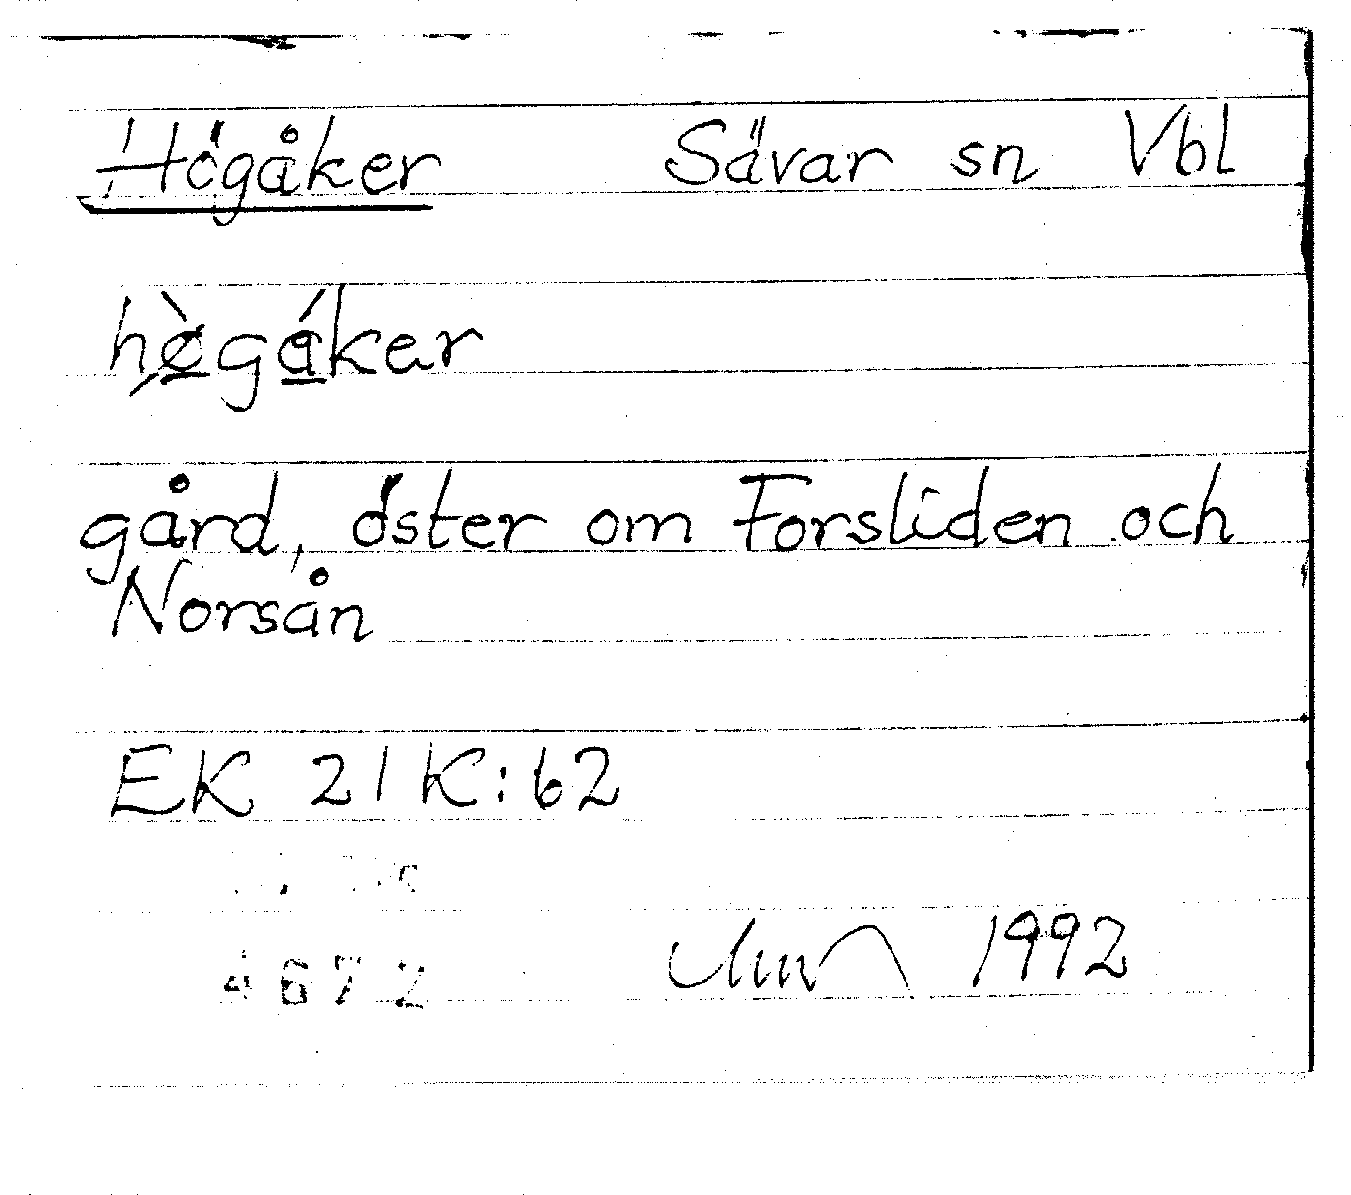 Högåker Sävar sn Vbl
hø̀gáker
gård, öster om Forsliden och
Norsån
EK 21K:62
4672 1992